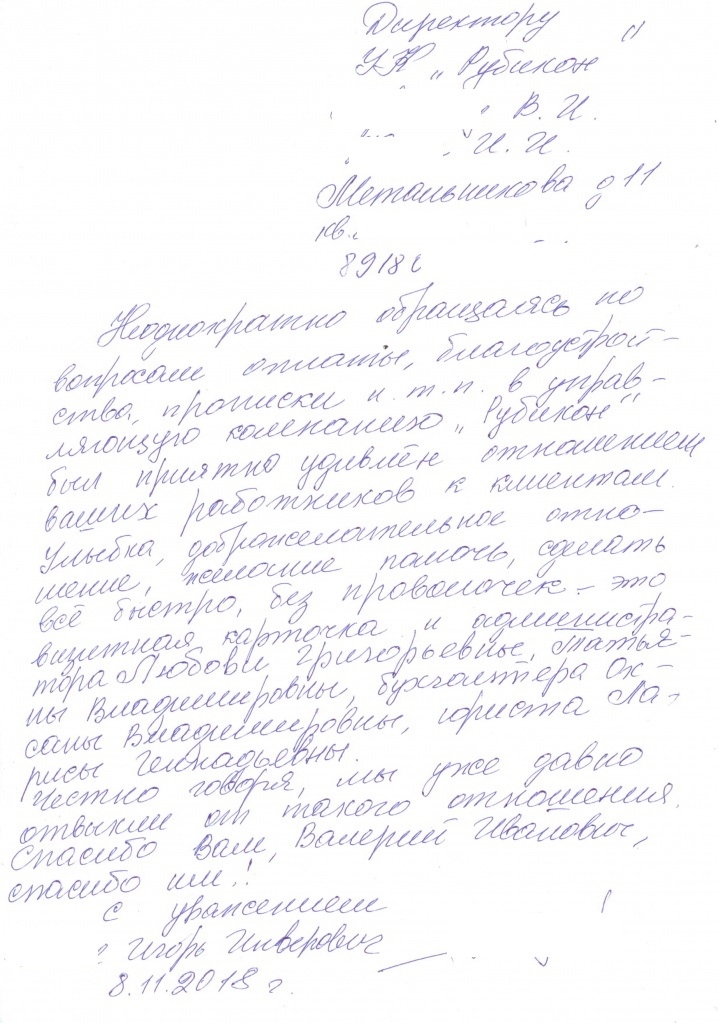 Директору
УК „Рубикон"
В. И.
И. И.
Метальникова д 11
кв.
8918
Неоднократно обращаясь по
вопросам оплаты, благоустрой-
ства, прописки и т. п. в управ-
ляющую компанию „Рубикон"
был приятно удивлён отношением
ваших работников к клиентам.
Улыбка, доброжелательное отно-
шение, желание помочь, сделать
всё быстро, без проволочек - это
визитная карточка и администра-
тора Любови Григорьевны, Татья-
ны Владимировны, бухгалтера Ок-
саны Владимировны, юриста Ла-
рисы Геннадьевны.
Честно говоря, мы уже давно
отвыкли от такого отношения.
Спасибо Вам, Валерий Иванович,
спасибо им!!
С уважением
Игорь
8.11.2018 г.